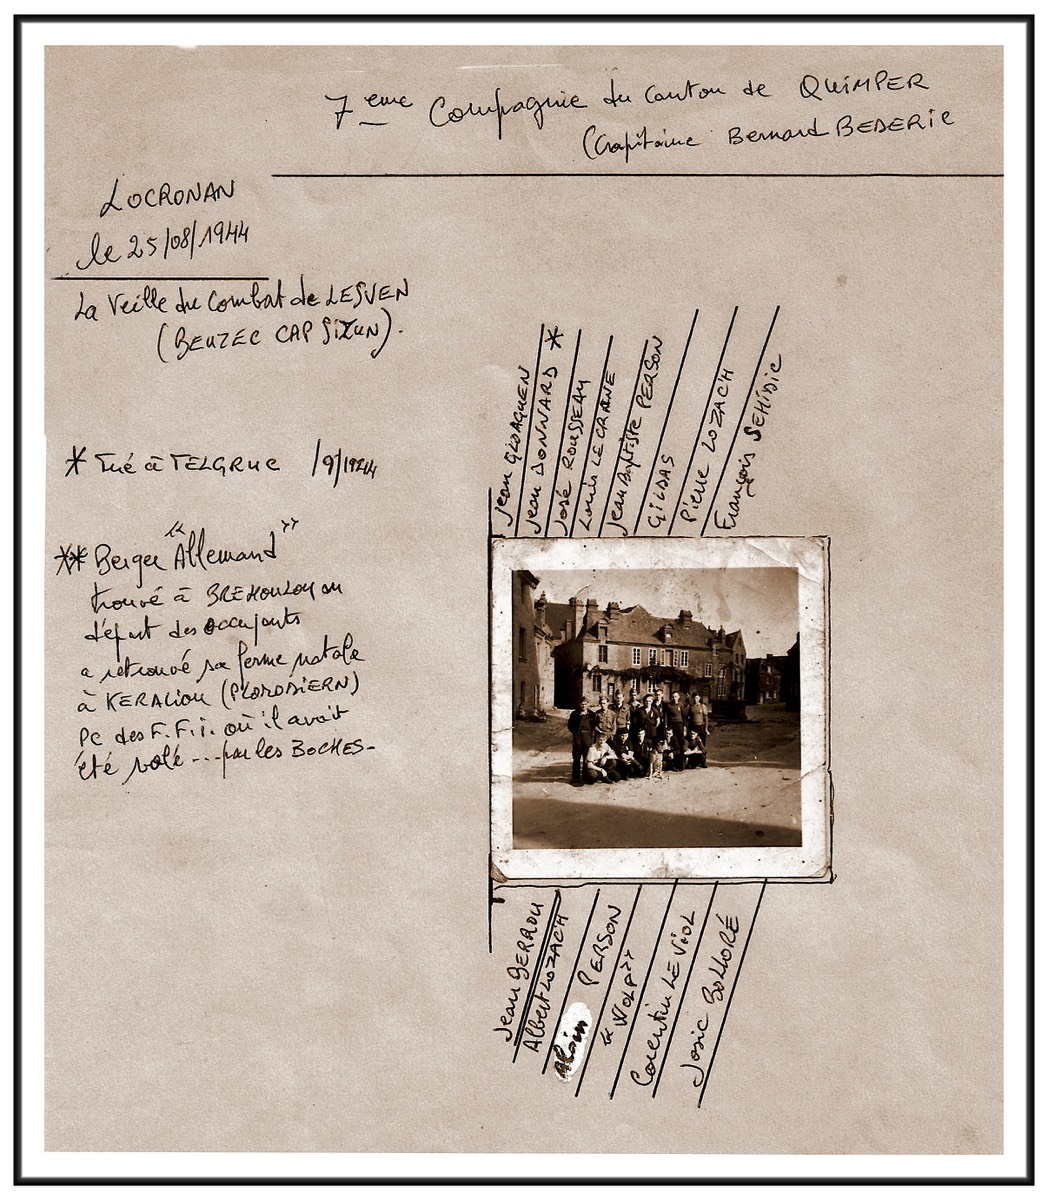 7eme Compagnie du Canton de QUIMPER
(Capitaine Bernard BEDERIC
LOCRONAN
le 25/08/1944
La Veille du Combat de LESVEN
(BEUZEC CAP SIZUN).
* Tué à TELGRUC 1/9/1944
** Berger "Allemand"
trouvé à BREHOULOU au
départ des occupants
a retrouvé sa ferme natale
à KERALIOU (PLOMODIERN)
PC des F.F.i. où il avait
été volé ... par les BOCHES-
Jean GLOAGUEN
Jean DONNARD *
José ROUSSEAU
Louis LE GRANE
Jean Baptiste PERSON
GILDAS
Pierre LOZAC'H
François SEHIDIC
Jean BERROU
Albert LOZAC'H
Alain PERSON
"WOLF"
Corentin LE VIOL
Josic BOLLORÉ